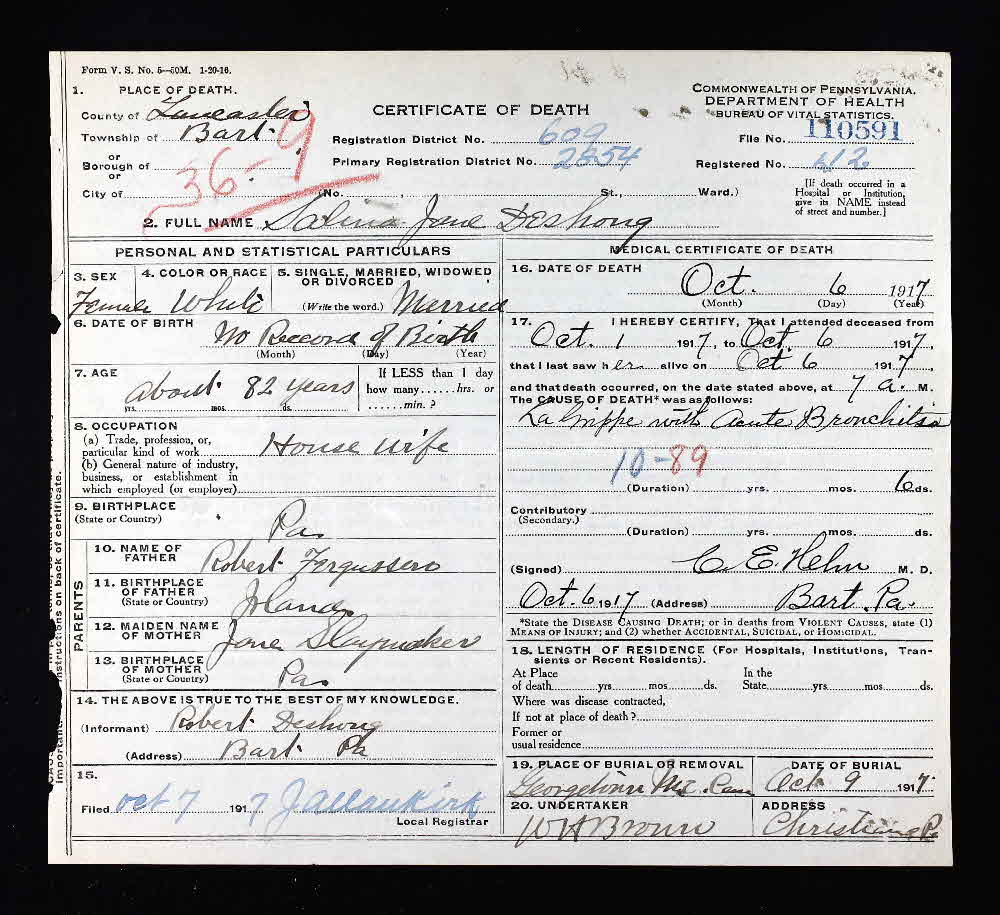 Form V. S. No. 5—50M. 1-20-16.
1. PLACE OF DEATH.
County of Lancaster
Township of Bart
or
Borough of
or
City of
36-9
CERTIFICATE OF DEATH
Registration District No. 609
Primary Registration District No. 2654
(No. , St., Ward.)
COMMONWEALTH OF PENNSYLVANIA.
DEPARTMENT OF HEALTH
BUREAU OF VITAL STATISTICS.
File No. 110591
Registered No. 612
[If death occurred in a
Hospital or Institution,
give its NAME instead
of street and number.]
2. FULL NAME Salina Jane Deshong
PERSONAL AND STATISTICAL PARTICULARS
3. SEX
Female
4. COLOR OR RACE
White
5. SINGLE, MARRIED, WIDOWED
OR DIVORCED
(Write the word.) Married
6. DATE OF BIRTH
No Record of Birth
(Month) (Day) (Year)
7. AGE
about 82 years
yrs. mos. ds.
If LESS than 1 day
how many......hrs. or
......min. ?
8. OCCUPATION
(a) Trade, profession, or,
particular kind of work House wife
(b) General nature of industry,
business, or establishment in
which employed (or employer)
9. BIRTHPLACE
(State or Country)
Pa.
PARENTS
10. NAME OF
FATHER Robert Fergusson
11. BIRTHPLACE
OF FATHER
(State or Country) Irland
12. MAIDEN NAME
OF MOTHER Jane Slaymaker
13. BIRTHPLACE
OF MOTHER
(State or Country) Pa.
14. THE ABOVE IS TRUE TO THE BEST OF MY KNOWLEDGE.
(Informant) Robert Deshong
(Address) Bart Pa
15.
Filed Oct 7 1917 J Allan Kirk
Local Registrar
MEDICAL CERTIFICATE OF DEATH
16. DATE OF DEATH
Oct. 6 1917
(Month) (Day) (Year)
17. I HEREBY CERTIFY, That I attended deceased from
Oct. 1 1917, to Oct. 6 1917,
that I last saw her alive on Oct 6 1917,
and that death occurred, on the date stated above, at 7 a. M.
The CAUSE OF DEATH* was as follows:
La Grippe with Acute Bronchitis
10-89
(Duration) yrs. mos. 6 ds.
Contributory
(Secondary.)
(Duration) yrs. mos. ds.
(Signed) C E. Helm M. D.
Oct. 6 1917 (Address) Bart Pa.
*State the DISEASE CAUSING DEATH; or in deaths from VIOLENT CAUSES, state (1)
MEANS OF INJURY; and (2) whether ACCIDENTAL, SUICIDAL, OR HOMICIDAL.
18. LENGTH OF RESIDENCE (For Hospitals, Institutions, Tran-
sients or Recent Residents).
At Place In the
of death yrs. mos. ds. State yrs. mos. ds.
Where was disease contracted,
If not at place of death?
Former or
usual residence
19. PLACE OF BURIAL OR REMOVAL
Georgetown M.E. Cem
DATE OF BURIAL
Oct 9 1917.
20. UNDERTAKER
W H Brown
ADDRESS
Christiana Pa
important.
instructions on back of certificate.